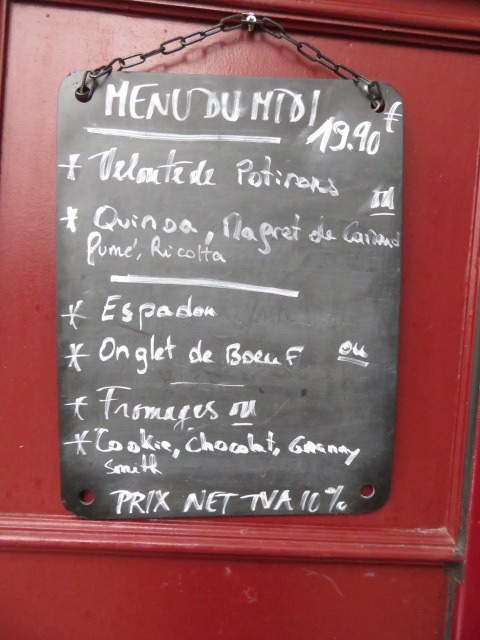 MENU DU MIDI
19.90 €
* Velouté de Potirons
ou
* Quinoa, Magret de Canard
fumé, Ricotta
* Espadon
* Onglet de Boeuf ou
* Fromages ou
* Cookie, Chocolat, Granny
Smith
PRIX NET TVA 10%